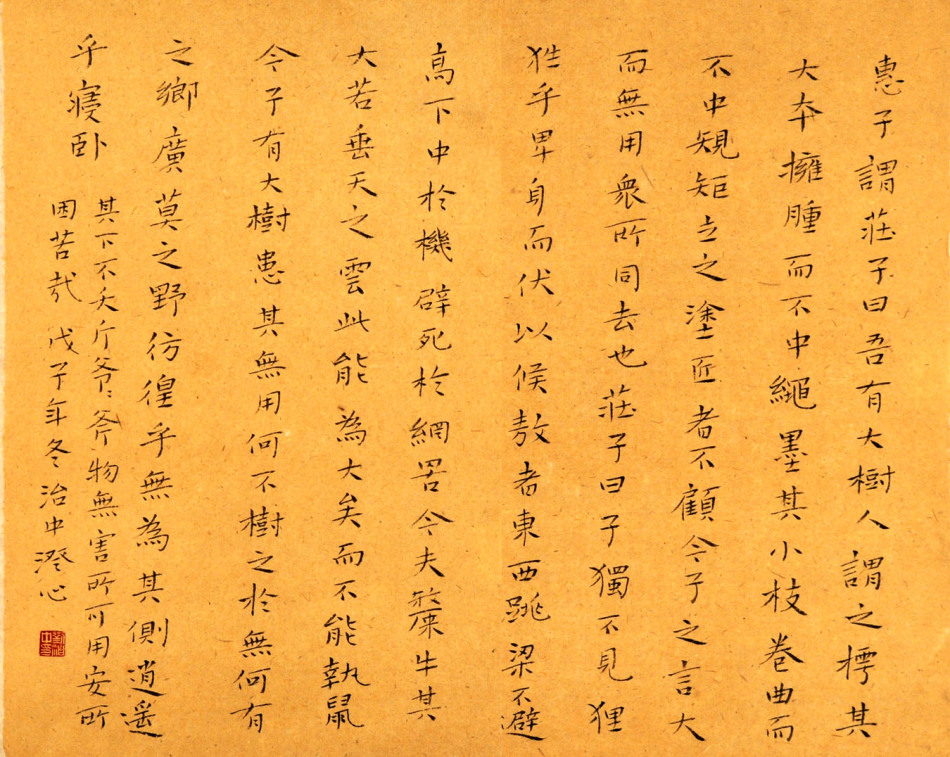 惠子謂莊子曰吾有大樹人謂之樗其
大本擁腫而不中繩墨其小枝卷曲而
不中規矩立之塗匠者不顧今子之言大
而無用衆所同去也莊子曰子獨不見狸
狌乎卑身而伏以候敖者東西跳梁不避
高下中於機辟死於網罟今夫斄牛其
大若垂天之雲此能為大矣而不能執鼠
今子有大樹患其無用何不樹之於無何有
之鄉廣莫之野彷徨乎無為其側逍遙
乎寢卧
其下不夭斤斧斧物無害所可用安所
困苦哉 戊子年冬治中澄心